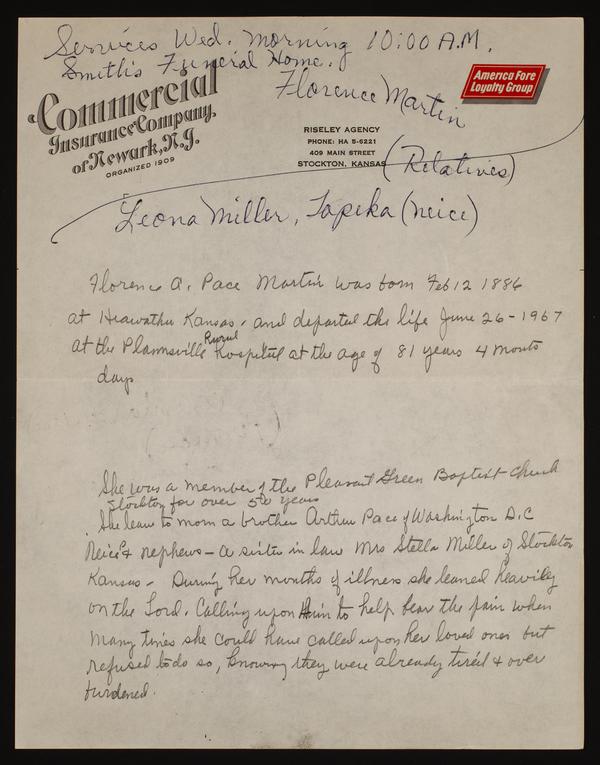 Services Wed. Morning 10:00 A.M.
Smith's Funeral Home.
Florence Martin
Commercial
Insurance Company,
of Newark, N.J.
ORGANIZED 1909
America Fore
Loyalty Group
RISELEY AGENCY
PHONE: HA 5-6221
409 MAIN STREET
STOCKTON, KANSAS
(Relatives)
Leona Miller, Topeka (neice)
Florence A. Pace Martin was born Feb 12 1886
at Hiawatha Kansas, and departed the life June 26-1967
at the Plainsville Rural hospital at the age of 81 years 4 monts
days
She was a member of the Pleasant Green Baptist Church
Stockton for over 50 years
She leave to morn a brother Arthur Pace of Washington D.C
Neices & nephews - a sister in law Mrs Stella Miller of Stockton
Kansas - During her months of illness she leaned heavily
on the Lord. Calling upon Him to help bear the pain when
many times she could have called upon her loved ones but
refused to do so, knowing they were already tired & over
burdened.